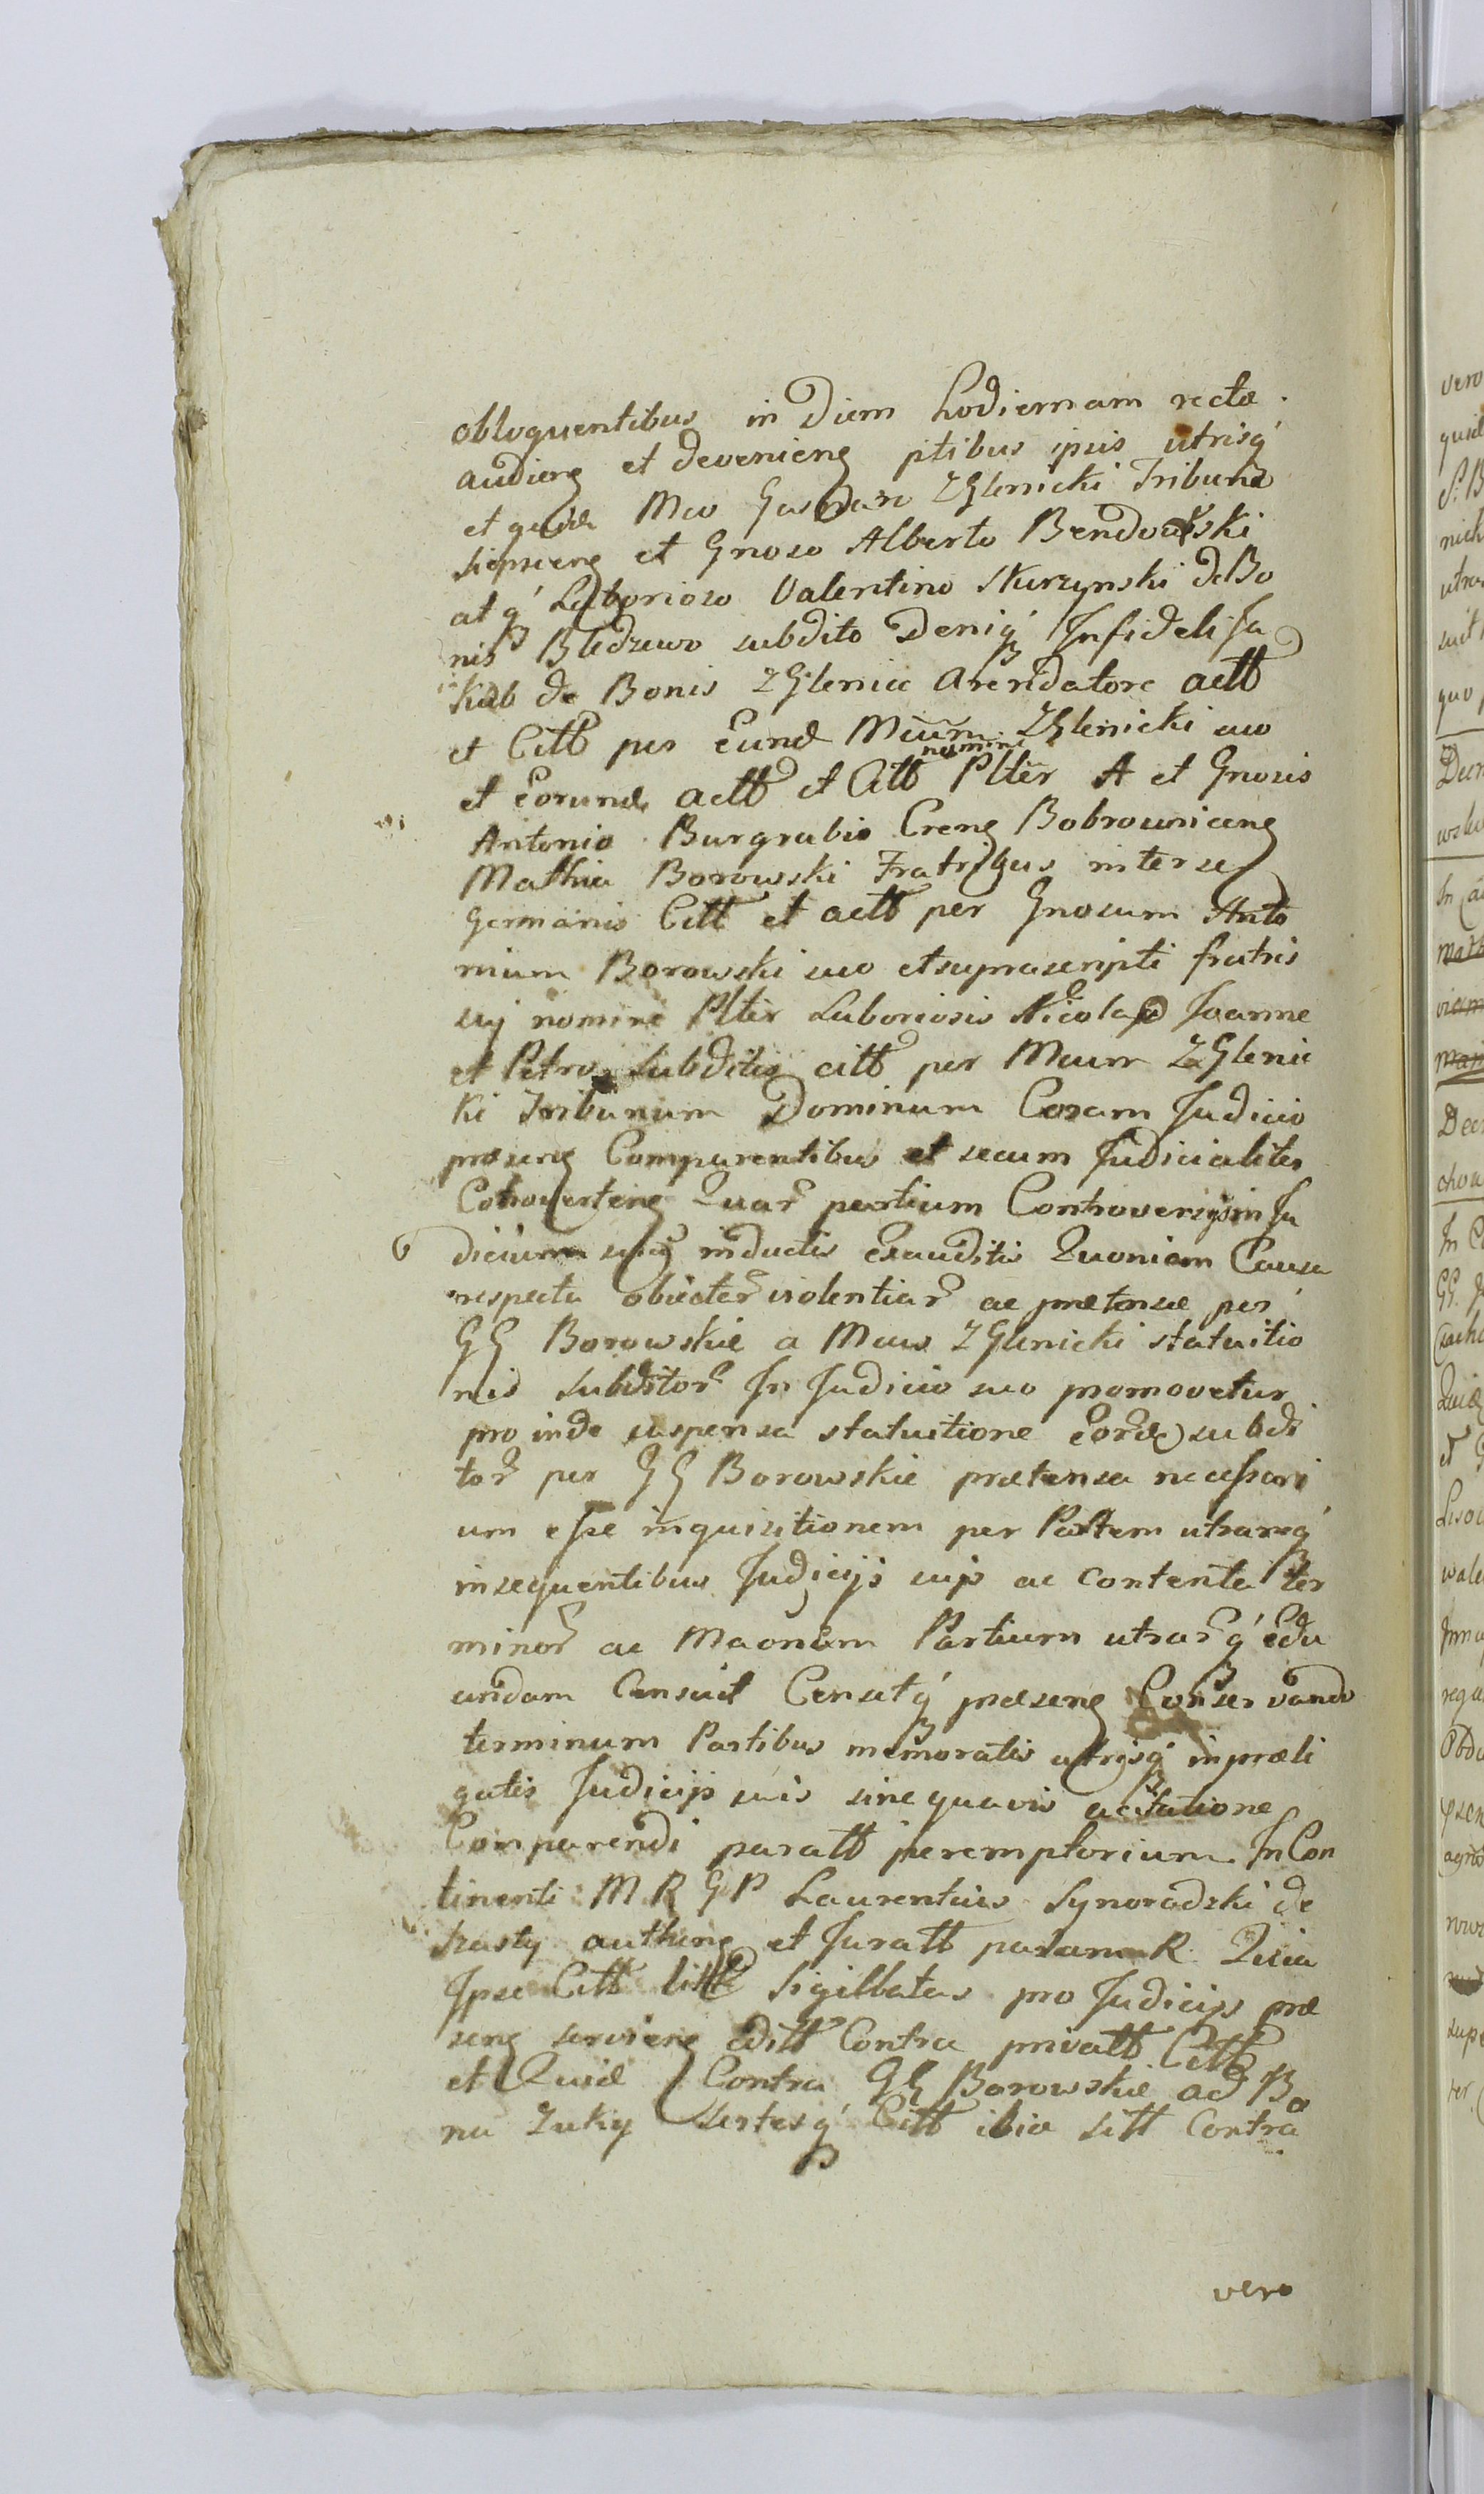 obloquentibus in Diem hodiernam recte
audieng et devenieng ptibus ipsis utrisq
et quide Mco Gaspare ZGlenicki Tribuno
et Gnoso Alberto Bendowski
atq Laborioso Valentino Skurzynski de Bo
nis Bledzewo subdito Deniq Infideli Ja
kub de Bonis ZGlenice Arendatore actt
et Citt per Eund Mcum ZGlenicki suo
nomine
et Eorund actt et Citt Plter A et Gnosis
Antonio Burgrabio Creng Bobrowniceng
Mathia Borowski Fratribus inter se
Germanis Citt et actt per Gnosum Anto
nium Borowski suo et suprascripti fratris
sui nomine Plter Laboriosis Nicolao Joanne
et Petro Subditis citt per Mcum ZGlenic
ki Tribunum Dominum Coram Judicio
præseng Comparentibus et secum Judicialiter
Cotroverteng Quar partium Controversys in Ju
dicium inductis Exauditis Quoniam Causa
respectu obiectar violentiar ac prætensæ per
GG Borowskie a Mco ZGlenicki statuitio
nis Subditor In Judicio suo promovetur
pro inde suspensa statuitione Eord subdi
tor per GG Borowskie prætensa necessari
um esse inquisitionem per Partem utramq
in sequentibus Judicijs ac contenta ter
minor ac Partium utrarq Edu
cendam Censuit Censetq præseng Conservando
terminum Partibus memoratis utrisq in præli
gatis Judicijs suis sine quavis acitatione
Comparendi paratt peremptorium. In Con
tinenti M R G P Laurentius Synoradzki de
autheng et Juratt palam R. Quia
Ipse Citt litt Sigillatas pro Judicijs præ
seng servieng Editt Contra privatt Citt
et Quid Contra GG Borowskie ad Bo
na Zuky Citt ibid sitt Contra
vero